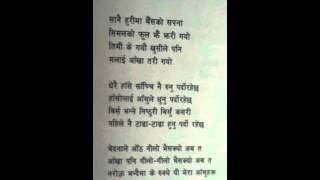 सानै हुरीमा बैंसको सपना
सिमलको फूल झैं झरी गयो
तिमी के गयौ खुसीले पनि
मलाई आँखा तरी गयो
धेरै हाँसे साँच्चि नै रुनु पर्दोरहेछ
हाँसोलाई आँसुले धुनु पर्दोरहेछ
बिर्स भन्ने निष्ठुरी बिर्सुं कसरी
पहिले नै टाढा-टाढा हुनु पर्दो रहेछ
बेदनाले ओंठ गीलो भैसक्यो अब त
आँखा पनि गीलो-गीलो भैसक्यो अब त
नरोऊ भन्दैमा के रुक्थे यी मेरा आँसुहरू